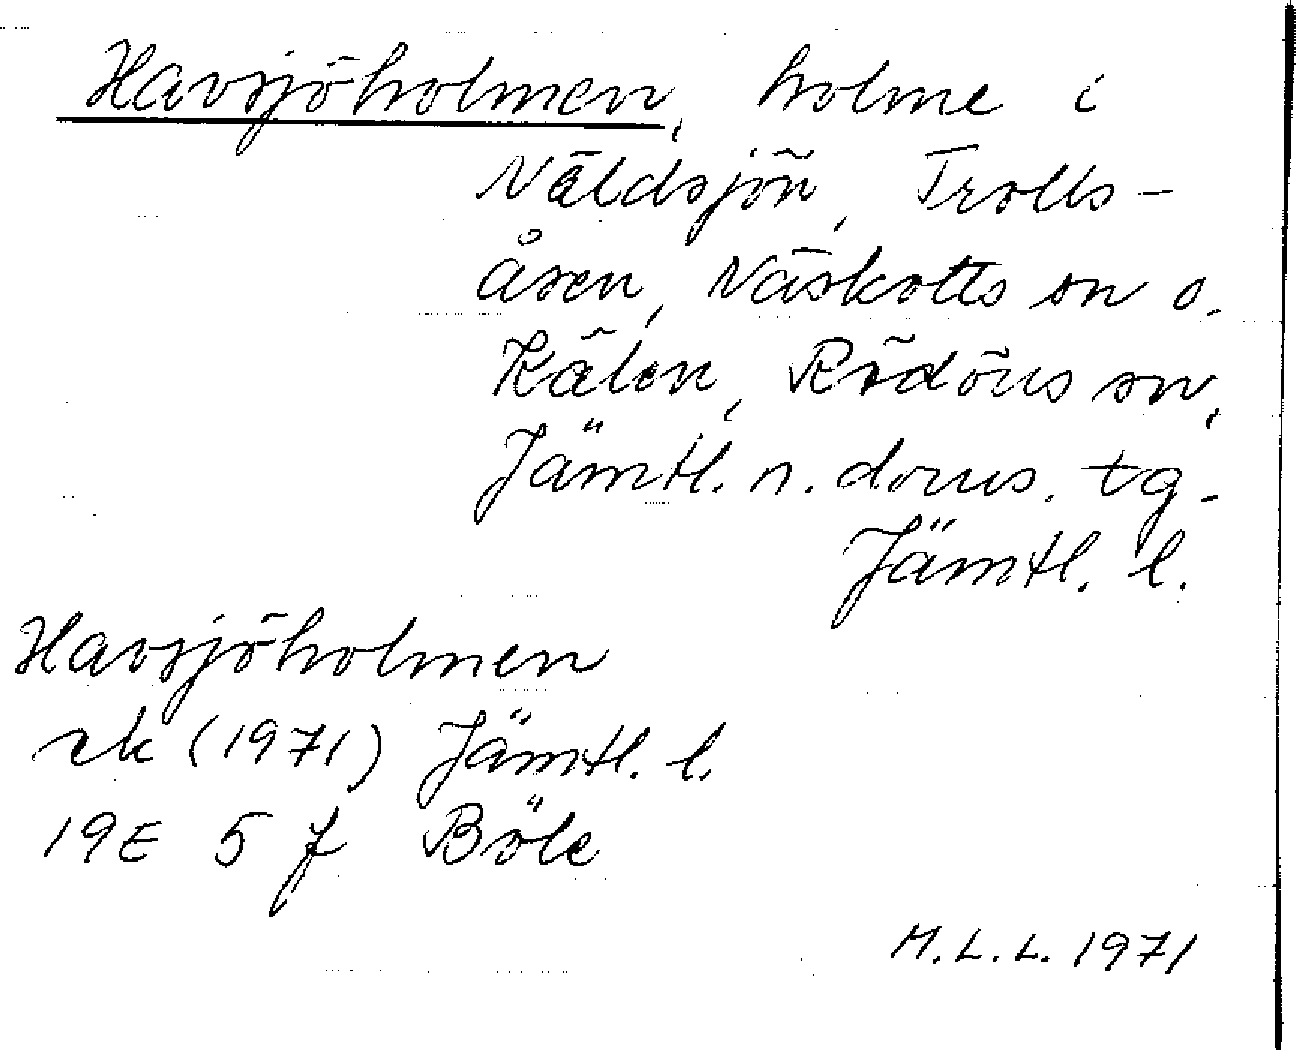 Havsjöholmen, holme i
Näldsjön, Trolls-
åsen, Näskotts sn o.
Kälen, Rödöns sn,
Jämtl. n. doms. tg.
Jämtl. l.
Havsjöholmen
ek (1971) Jämtl. l.
19E 5 f Böle
M.L.L. 1971